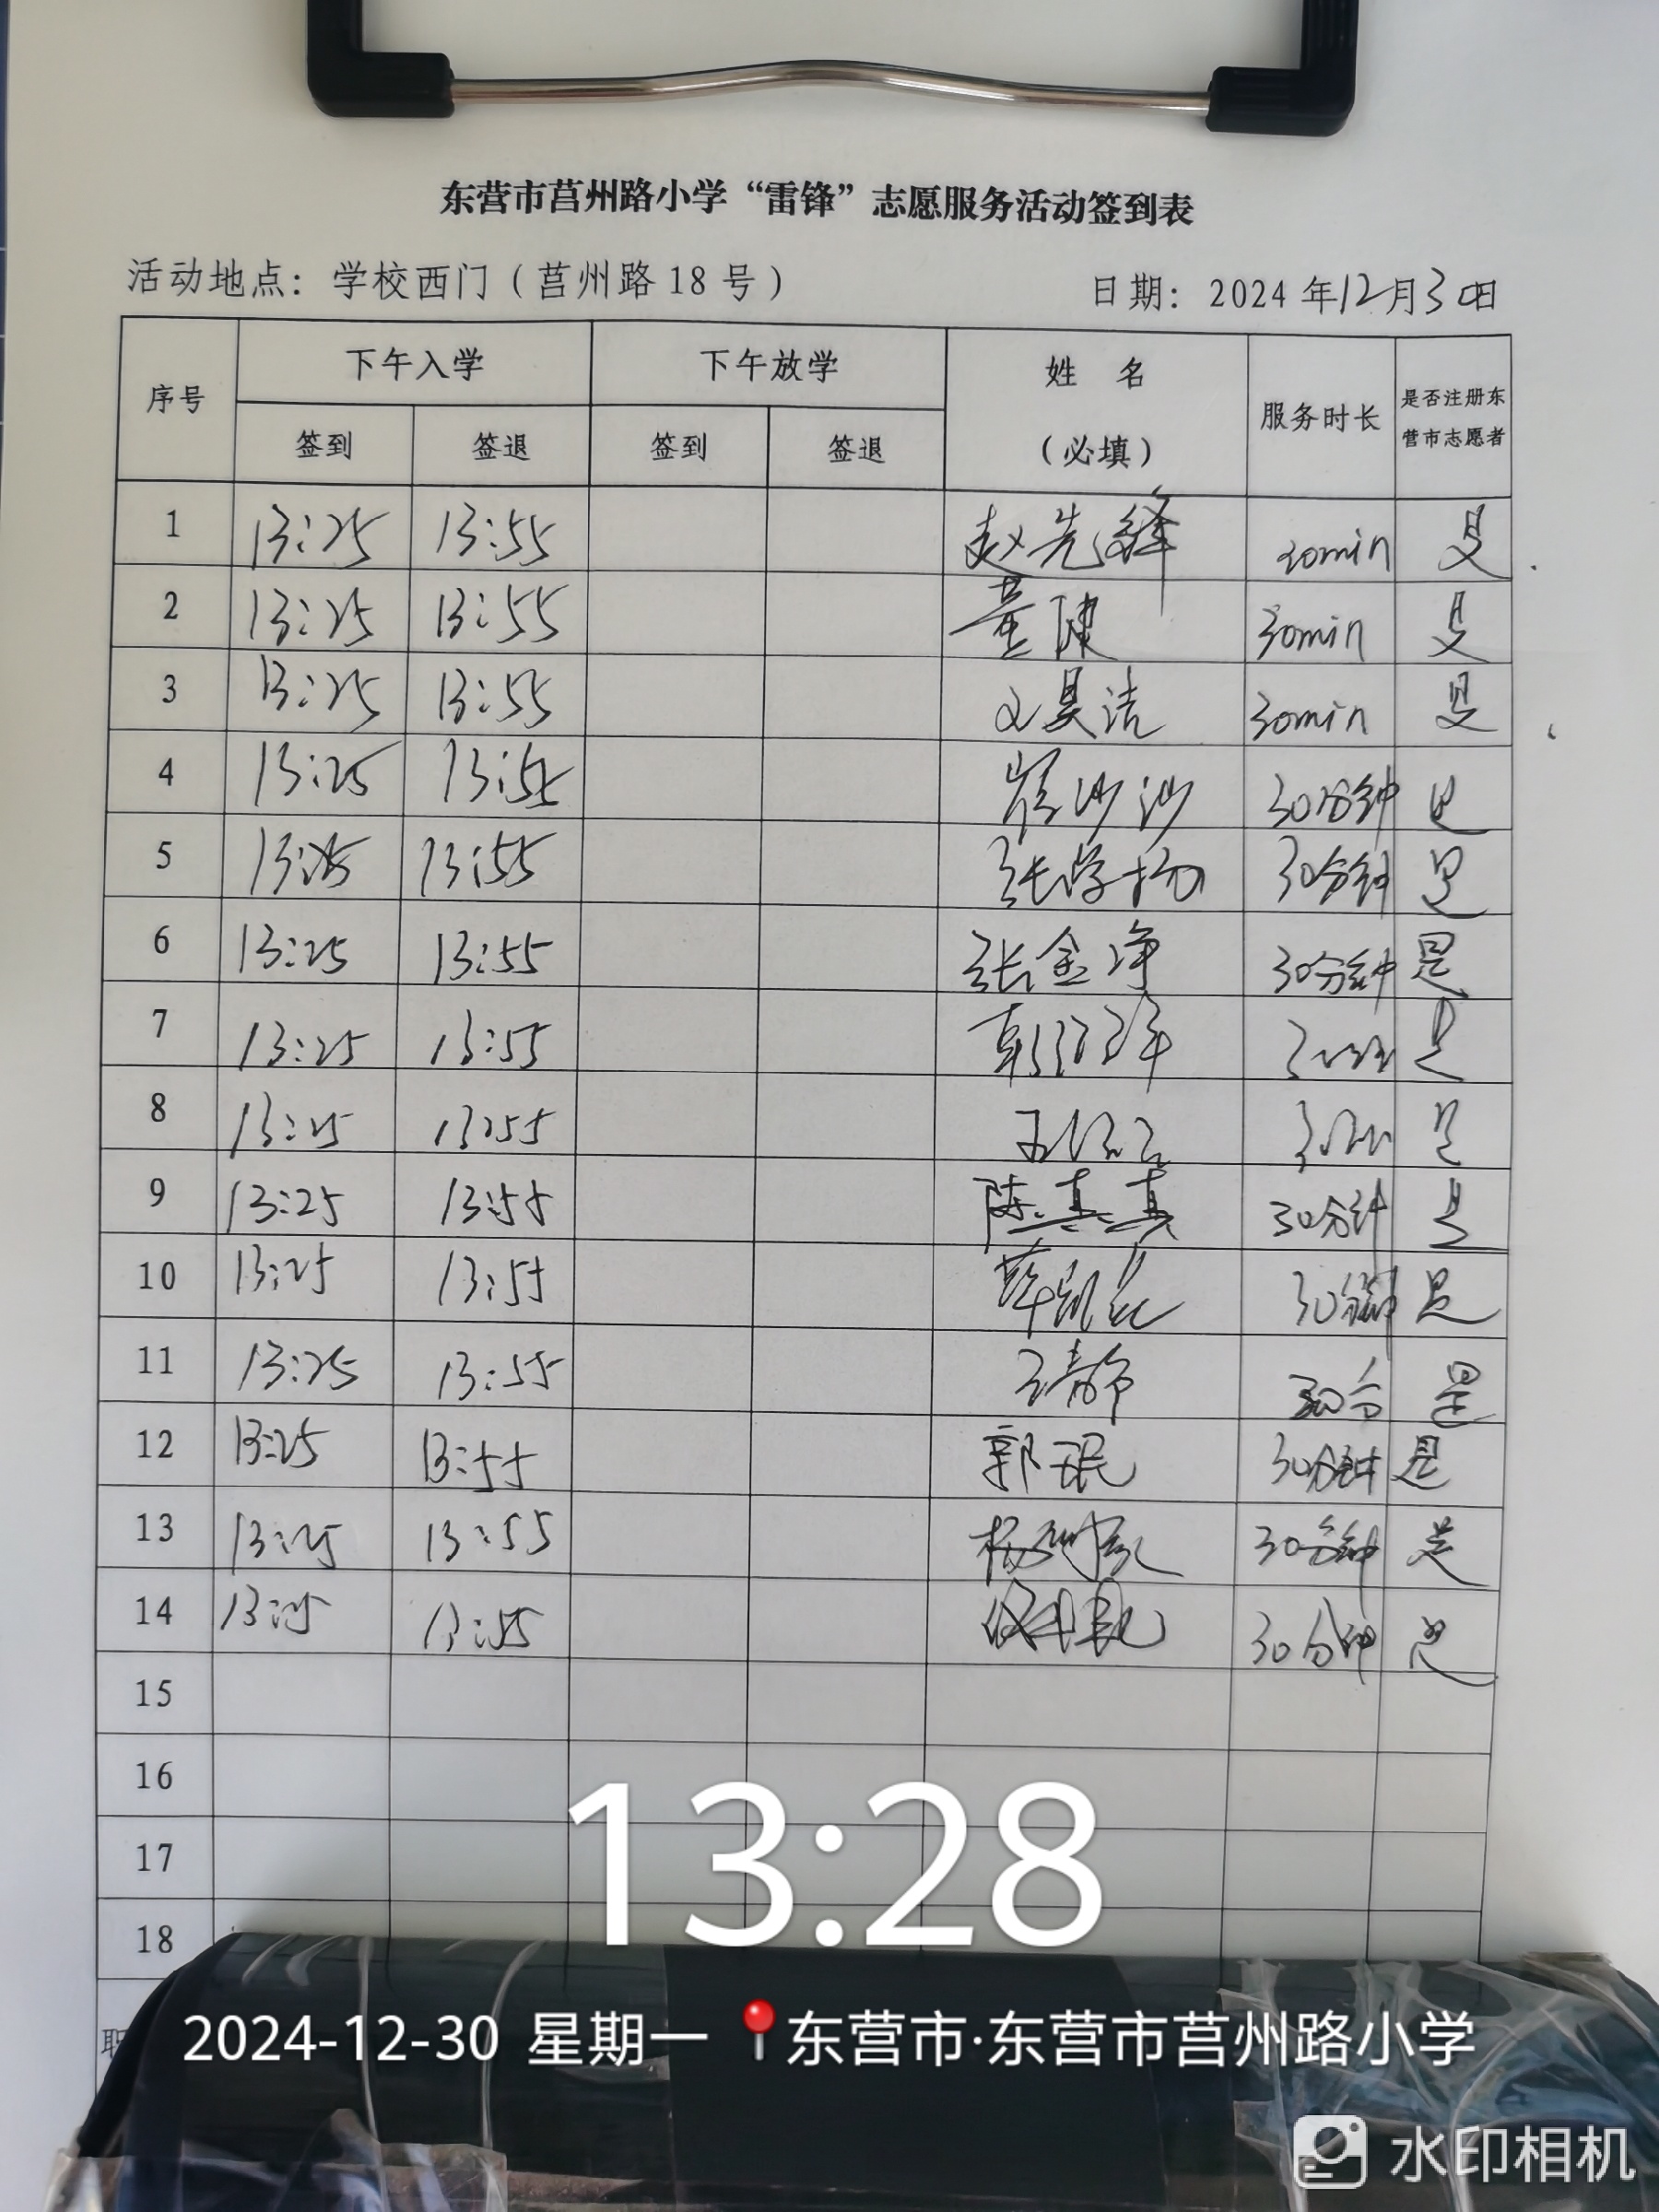 东营市莒州路小学“雷锋”志愿服务活动签到表
活动地点：学校西门（莒州路18号） 日期：2024年12月30日
序号 下午入学 下午放学 姓名（必填） 服务时长 是否注册东营市志愿者
签到 签退 签到 签退
1 13:25 13:55 赵先锋 30min 是
2 13:25 13:55 董健 30min 是
3 13:25 13:55 文昊洁 30min 是
4 13:25 13:55 崔沙沙 30分钟 是
5 13:25 13:55 张学杨 30分钟 是
6 13:25 13:55 张金净 30分钟 是
7 13:25 13:55 是
8 13:25 13:55 是
9 13:25 13:55 陈真真 30分钟 是
10 13:25 13:55 30分钟 是
11 13:25 13:55 王静 30分 是
12 13:25 13:55 郭珉 30分钟 是
13 13:25 13:55 30分钟 是
14 13:25 13:55 30分钟 是
15
16
17
18
13:28
2024-12-30 星期一 东营市·东营市莒州路小学
水印相机